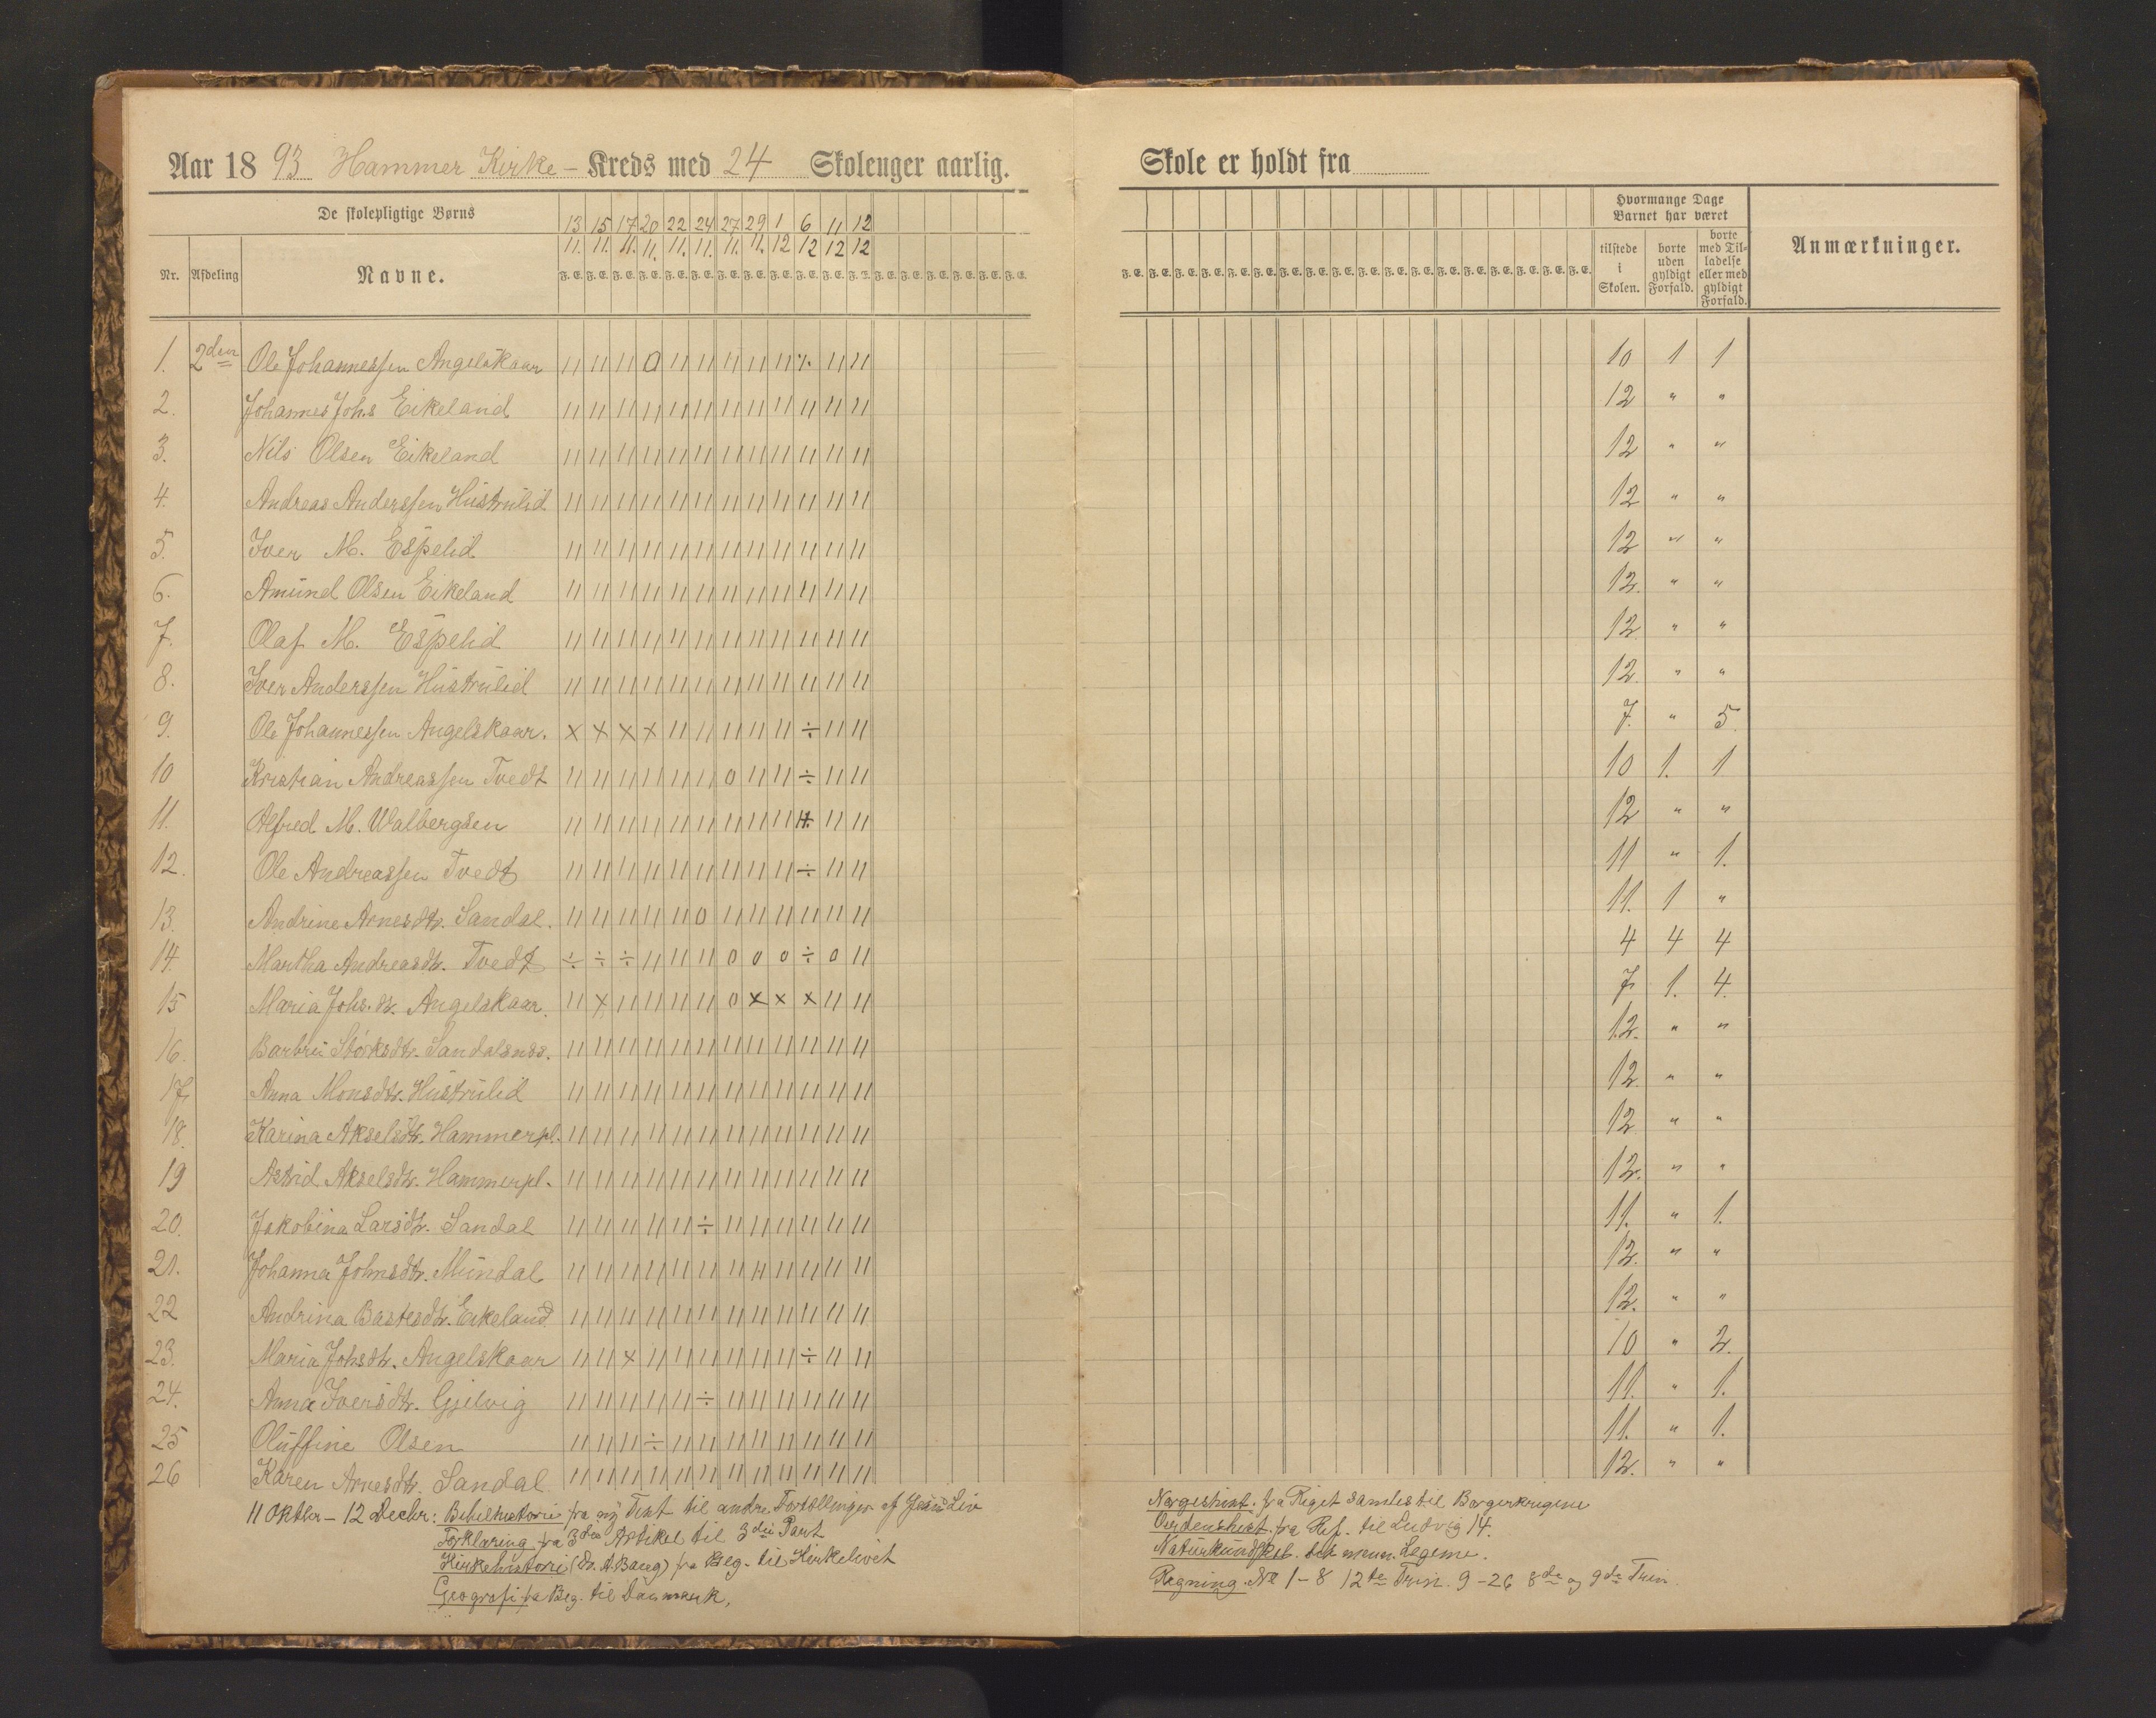 Aar 1893 Hammer Kirke - Kreds med 24 Skolenger aarlig.
De skolepligtige Børns
13 15 17 20 22 24 27 29 1 6 11 12
11. 11. 11. 11. 11. 11. 11. 11. 12 12 12 12
Nr. Afdeling Navne. F. E. F. E. F. E. F. E. F. E. F. E. F. E. F. E. F. E. F. E. F. E. F. E. F. E. F. E. F. E. F. E. F. E. F. E.
1. 2den Ole Johannessen Angelskaar 11 11 11 0 11 11 11 11 11 ٪ 11 11
2. Johannes Johs Eikeland 11 11 11 11 11 11 11 11 11 11 11 11
3. Nils Olsen Eikeland 11 11 11 11 11 11 11 11 11 11 11 11
4. Andreas Anderssen Hustrulid 11 11 11 11 11 11 11 11 11 11 11 11
5. Iver M. Espelid 11 11 11 11 11 11 11 11 11 11 11 11
6. Amund Olsen Eikeland 11 11 11 11 11 11 11 11 11 11 11 11
7. Olaf M. Espelid 11 11 11 11 11 11 11 11 11 11 11 11
8. Iver Anderssen Hustrulid 11 11 11 11 11 11 11 11 11 11 11 11
9. Ole Johannessen Angelskaar. x x x x 11 11 11 11 11 ÷ 11 11
10 Kristian Andreassen Tvedt 11 11 11 11 11 11 0 11 11 ÷ 11 11
11. Alfred M. Walbergsen 11 11 11 11 11 11 11 11 11 11 11 11
12. Ole Andreassen Tvedt 11 11 11 11 11 11 11 11 11 ÷ 11 11
13. Andrine Arnesdtr. Sandal. 11 11 11 11 11 0 11 11 11 11 11 11
14. Martha Andreasdtr. Tvedt ÷ ÷ ÷ 11 11 11 0 0 0 ÷ 0 11
15 Maria Johs.dtr. Angelskaar. 11 x 11 11 11 11 0 x x x 11 11
16. Barbru Størksdtr. Sandalsnes. 11 11 11 11 11 11 11 11 11 11 11 11
17. Anna Monsdtr. Hustrulid 11 11 11 11 11 11 11 11 11 11 11 11
18. Karina Akselsdtr. Hammerpl. 11 11 11 11 11 11 11 11 11 11 11 11
19 Astrid Akselsdtr. Hammerpl. 11 11 11 11 11 11 11 11 11 11 11 11
20. Jakobina Larsdtr. Sandal 11 11 11 11 11 ÷ 11 11 11 11 11 11
21. Johanna Johnsdtr. Mundal 11 11 11 11 11 11 11 11 11 11 11 11
22 Andrina Bastesdtr. Eikeland 11 11 11 11 11 11 11 11 11 11 11 11
23. Maria Johsdtr. Angelskaar 11 11 x 11 11 11 11 11 11 ÷ 11 11
24. Anna Iversdtr. Gjelvig 11 11 11 11 11 ÷ 11 11 11 11 11 11
25 Oluffine Olsen 11 11 11 ÷ 11 11 11 11 11 11 11 11
26 Karen Arnesdtr. Sandal. 11 11 11 11 11 11 11 11 11 11 11 11
11 Oktbr - 12 Decbr: Bibelhistorie fra ny Test til andre Fortællinger af Jesu Liv
Forklaring fra 3die Artikel til 3die Part
Kirkehistorie fra Beg. til Kirkelivet
Geografi fra Beg. til Danmark,
Skole er holdt fra
Hvormange Dage Barnet har været
F. E. F. E. F. E. F. E. F. E. F. E. F. E. F. E. F. E. F. E. F. E. F. E. F. E. F. E. F. E. F. E. F. E. F. E. tilstede i Skolen. borte uden gyldigt Forfald. borte med Tilladelse eller med gyldigt Forfald. Anmærkninger.
10 1 1
12 " "
12 " "
12 " "
12 " "
12. " "
12 " "
12. " "
7. " 5
10 1. 1
12 " "
11 " 1.
11. 1 "
4 4 4
7 1. 4.
12. " "
12. " "
12 " "
12. " "
11. " 1.
12. " "
12. " "
10 " 2.
11. " 1.
11. " 1.
12. " "
Norgeshist. fra Riget samles til Borgerkrigene
Verdenshist. fra Ref. til Ludvig 14.
Naturkundskab. det menn. Legeme.
Regning. No 1-8 12te Trin. 9-26 8de og 9de Trin.